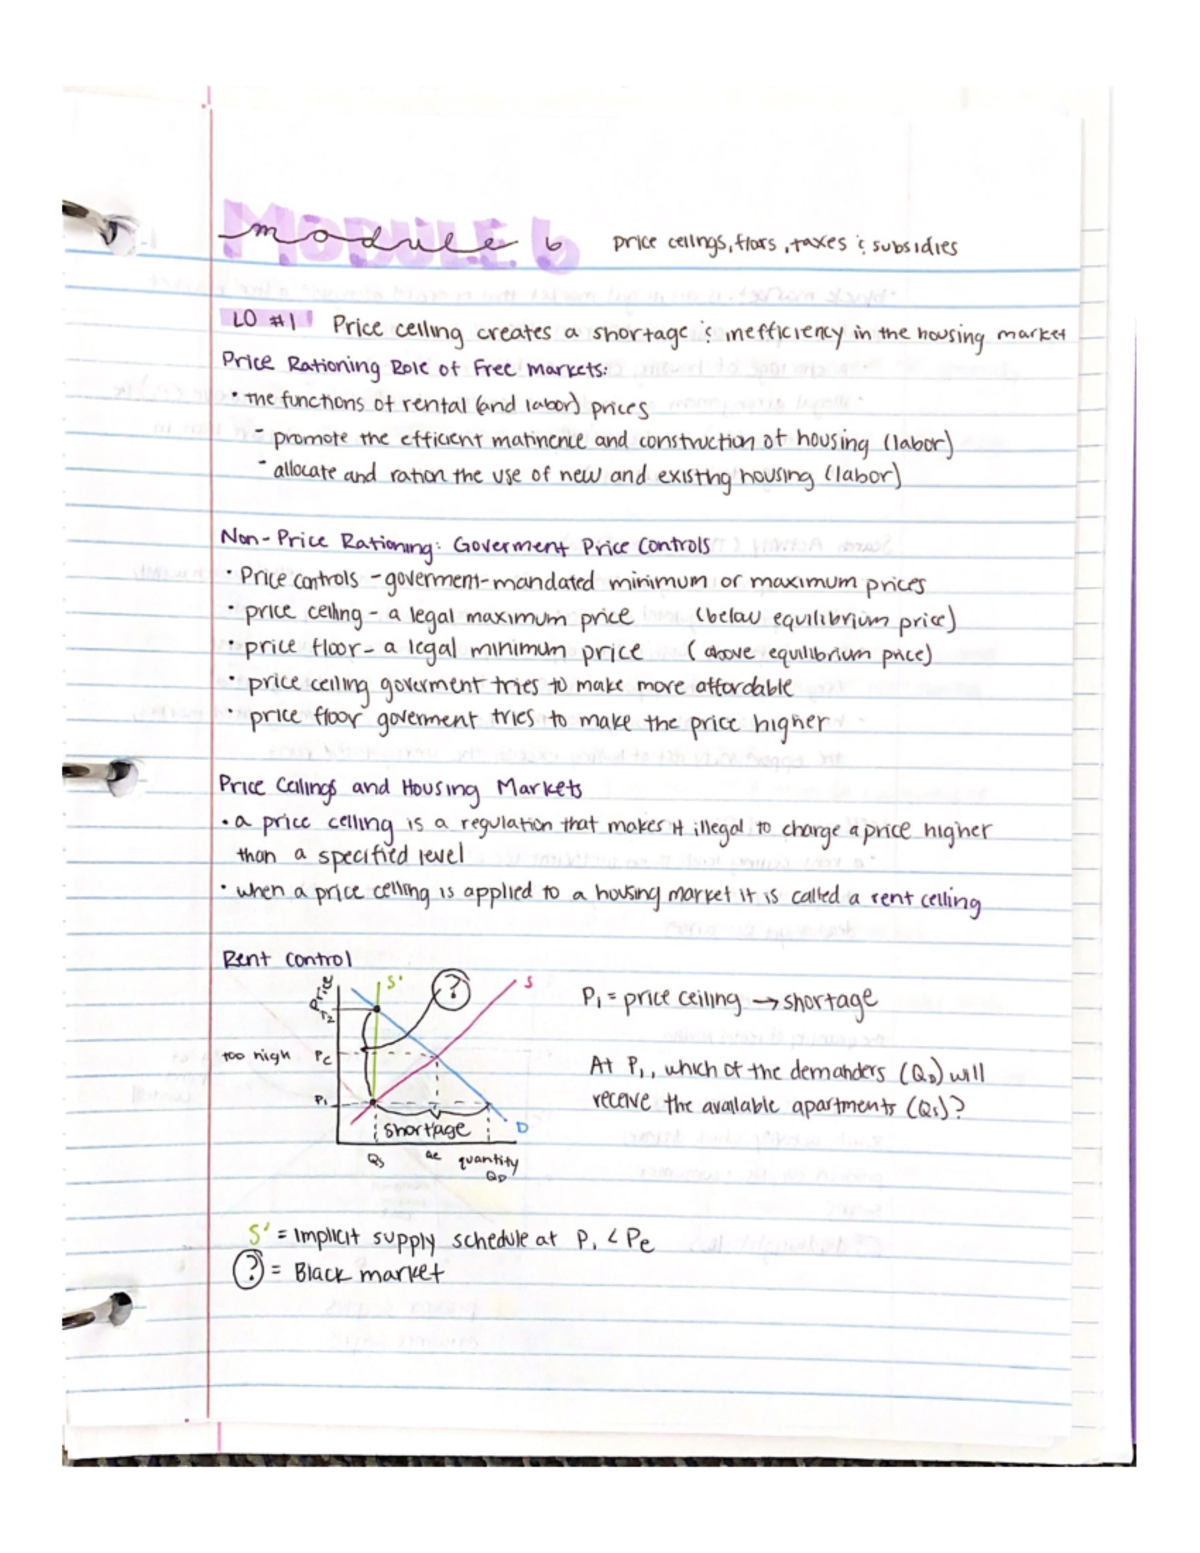 MODULE 6
module 6 price celings, flors, taxes & subsidies
LO #1 Price celling creates a shortage & inefficiency in the housing market
Price Rationing Role of Free Markets:
• the functions of rental (and labor) prices
- promote the efficient matinence and construction of housing (labor)
- allocate and ration the use of new and existing housing (labor)
Non-Price Rationing: Goverment Price Controls
• Price controls - goverment-mandated minimum or maximum prices
• price celling - a legal maximum price (below equilibrium price)
• price floor - a legal minimum price (above equilibrium price)
• price ceiling goverment tries to make more affordable
• price floor goverment tries to make the price higher
Price Ceilings and Housing Markets
• a price celling is a regulation that makes it illegal to charge a price higher
than a specified level
• when a price celling is applied to a housing market it is called a rent celling
Rent control
Price
S'
?
S
P₁ = price ceiling → shortage
P2
too high Pc
At P₁, which of the demanders (QD) will
receive the available apartments (Qs)?
P₁
shortage
D
Qs Qe quantity
QD
S' = Implicit supply schedule at P₁ < Pe
? = Black market